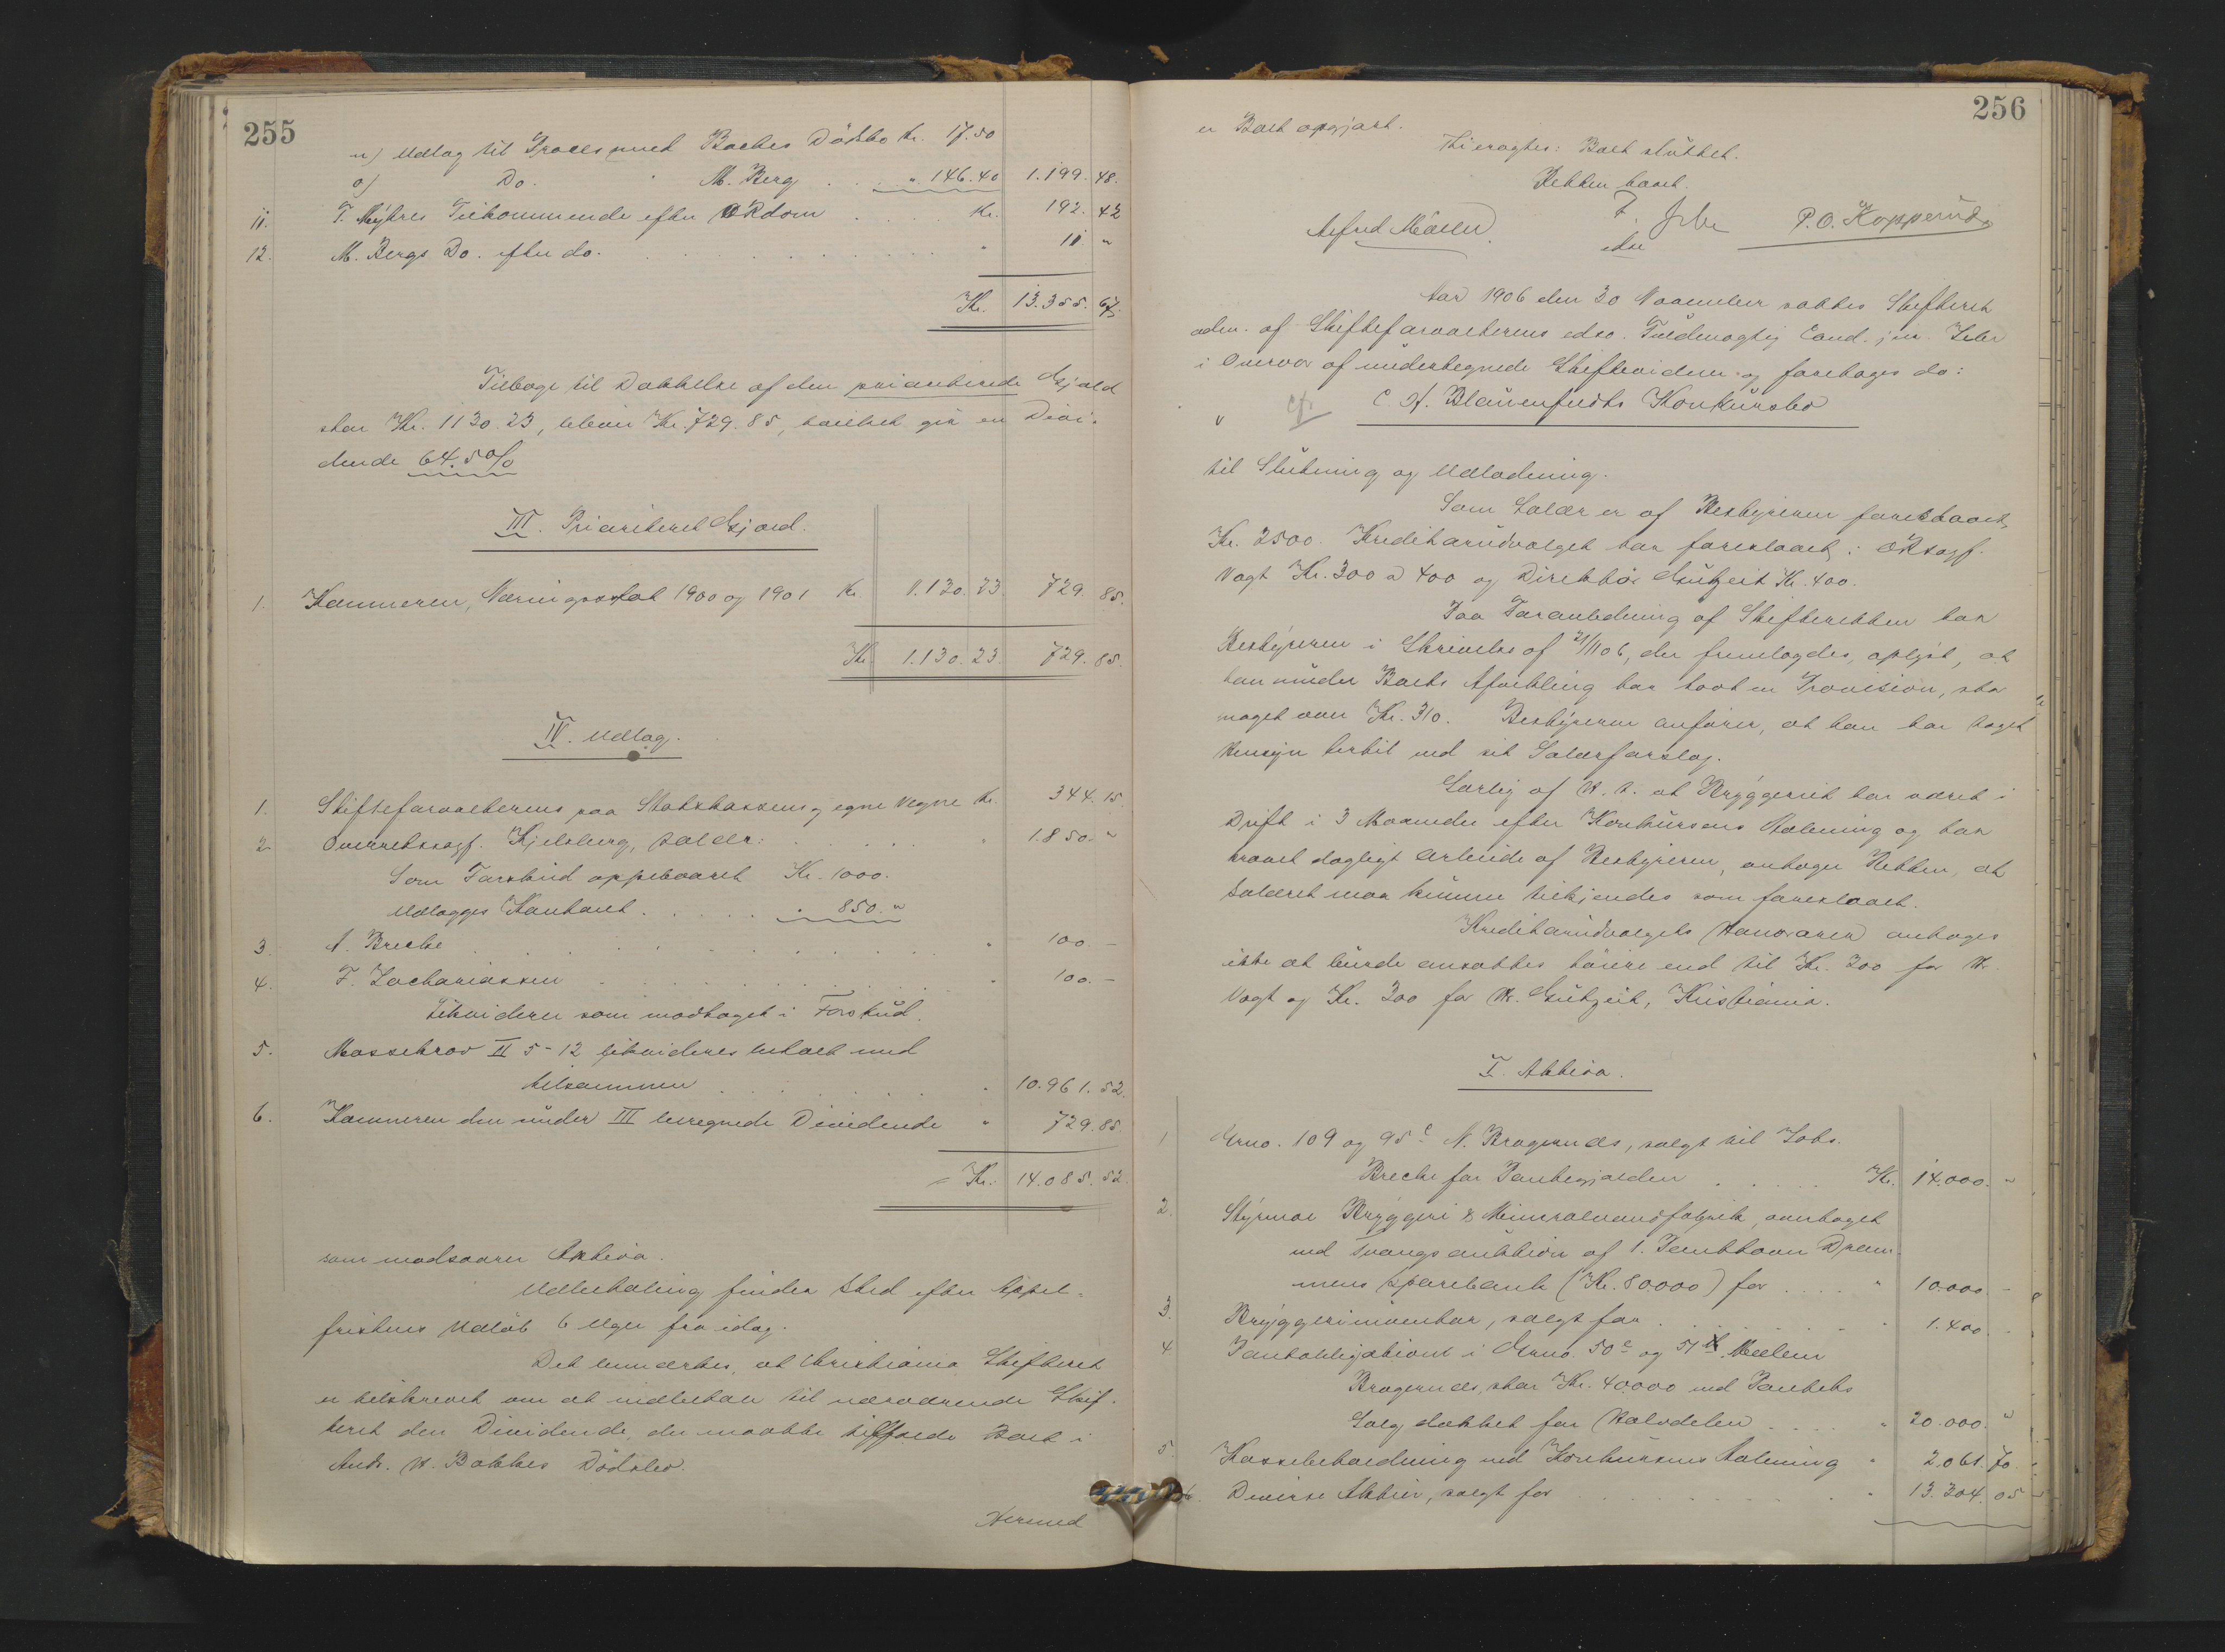 255
n) Udlæg til Proces mod Backes Dödsbo Kr. 17.50
o) Do. " M. Berg . . . " 146.40 1.199.48.
11. T. Myhres Tilkommende efter ORdom . . . . Kr. 192.42
12. M. Bergs Do. efter do. . . . . . . . . . " 11 "
Kr. 13.355.67.
Tilbage til Dækkelse af den prioriterede Gjæld
stor Kr. 1130.23, bliver Kr. 729.85, hvilket gir en Divi-
dende 64.5 %
III. Prioriteret Gjæld.
1. Kæmneren, Næringsskat 1900 og 1901 Kr. 1.130.23. 729.85.
Kr. 1.130.23. 729.85.
IV. Udlæg.
1. Skifteforvalterens paa Statskassens og egne Vegne Kr. 344.15
2. Overretssagf. Kjelsberg, Salær: . . . . . " 1.850. "
Som Forskud oppebaaret Kr. 1000.
Udlægges Kontant . . . . . . " 850. "
3. A. Brecke . . . . . . . . . . " 100. –
4. F. Zachariassen . . . . . . . . . " 100. –
Likviderer som modtaget i Forskud.
5. Massekrav II 5-12 likvideres betalt med
tilsammen . . . . . . " 10.961.52.
6. Kæmneren den under III beregnede Dividende " 729.85.
Kr. 14.085.52.
som modsvarer Aktiva.
Udbetaling finder Sted efter Appel-
fristens Udløb 6 Uger fra idag.
Det bemærkes, at Christiania Skifteret
er tilskrevet om at indbetale til nærværende Skif-
teret den Dividende, der maatte tilfalde Boet i
Andr. H. Bakkes Dödsbo.
Hermed
256
er Boet opgjort.
Thi eragtes: Boet sluttet.
Retten hævet.
Alfred Möller. F. P.O. Kopperud
edsv
Aar 1906 den 30 November sattes Skifteret
adm. af Skifteforvalterens edsv. Fuldmægtig Cand. jur.
i Overvær af undertegnede Skiftevidner og foretoges da:
" cfr C. A. Blauenfeldts Konkursbo
til Slutning og Udlodning.
Som Salær er af Bestyreren foreslaaet,
Kr. 2500. Kreditorudvalget har foreslaaet: ORsagf.
Vogt Kr. 300 à 400 og Direktör Gutzeit Kr. 400.
Paa Foranledning af Skifteretten har
Bestyreren i Skrivelse af 21/11 06, der fremlagdes, oplyst, at
han under Boets Afvikling har havt en Provision, stor
noget over Kr. 310. Bestyreren anförer, at han har taget
Hensyn hertil ved sit Salærforslag.
Særlig af H. t. at Bryggeriet har været i
Drift i 3 Maaneder efter Konkursens Aabning og har
krævet dagligt Arbeide af Bestyreren, antager Retten, at
Salæret maa kunne tilkjendes som foreslaaet.
Kreditorudvalgets Honorarer antages
ikke at burde ansættes höiere end til Kr. 300 for Hr.
Vogt og Kr. 300 for Hr. Gutzeit, Kristiania.
I. Aktiva.
1 Grno. 109 og 95c N. Bragernæs, solgt til Johs.
Brecke for Pantegjælden . . . . . . Kr. 14.000. "
2. Styrmoe Bryggeri & Mineralvandfabrik, overtaget
ved Tvangsauktion af 1. Panthaver Dram-
mens Sparebank (Kr. 80.000) for . . . . " 10.000. –
3. Bryggeriinventar, solgt for . . . . . . . " 1.400. –
4 Pantobligationer i Grno. 50c og 51 Mellem
Bragernæs, stor Kr. 40.000 ved Pantets
Salg dækket for Halvdelen . . . . " 20.000. "
5. Kassebeholdning ved Konkursens Aabning " 2.061.70.
6. Diverse Aktier, solgt for . . . . . . . . " 13.304.05